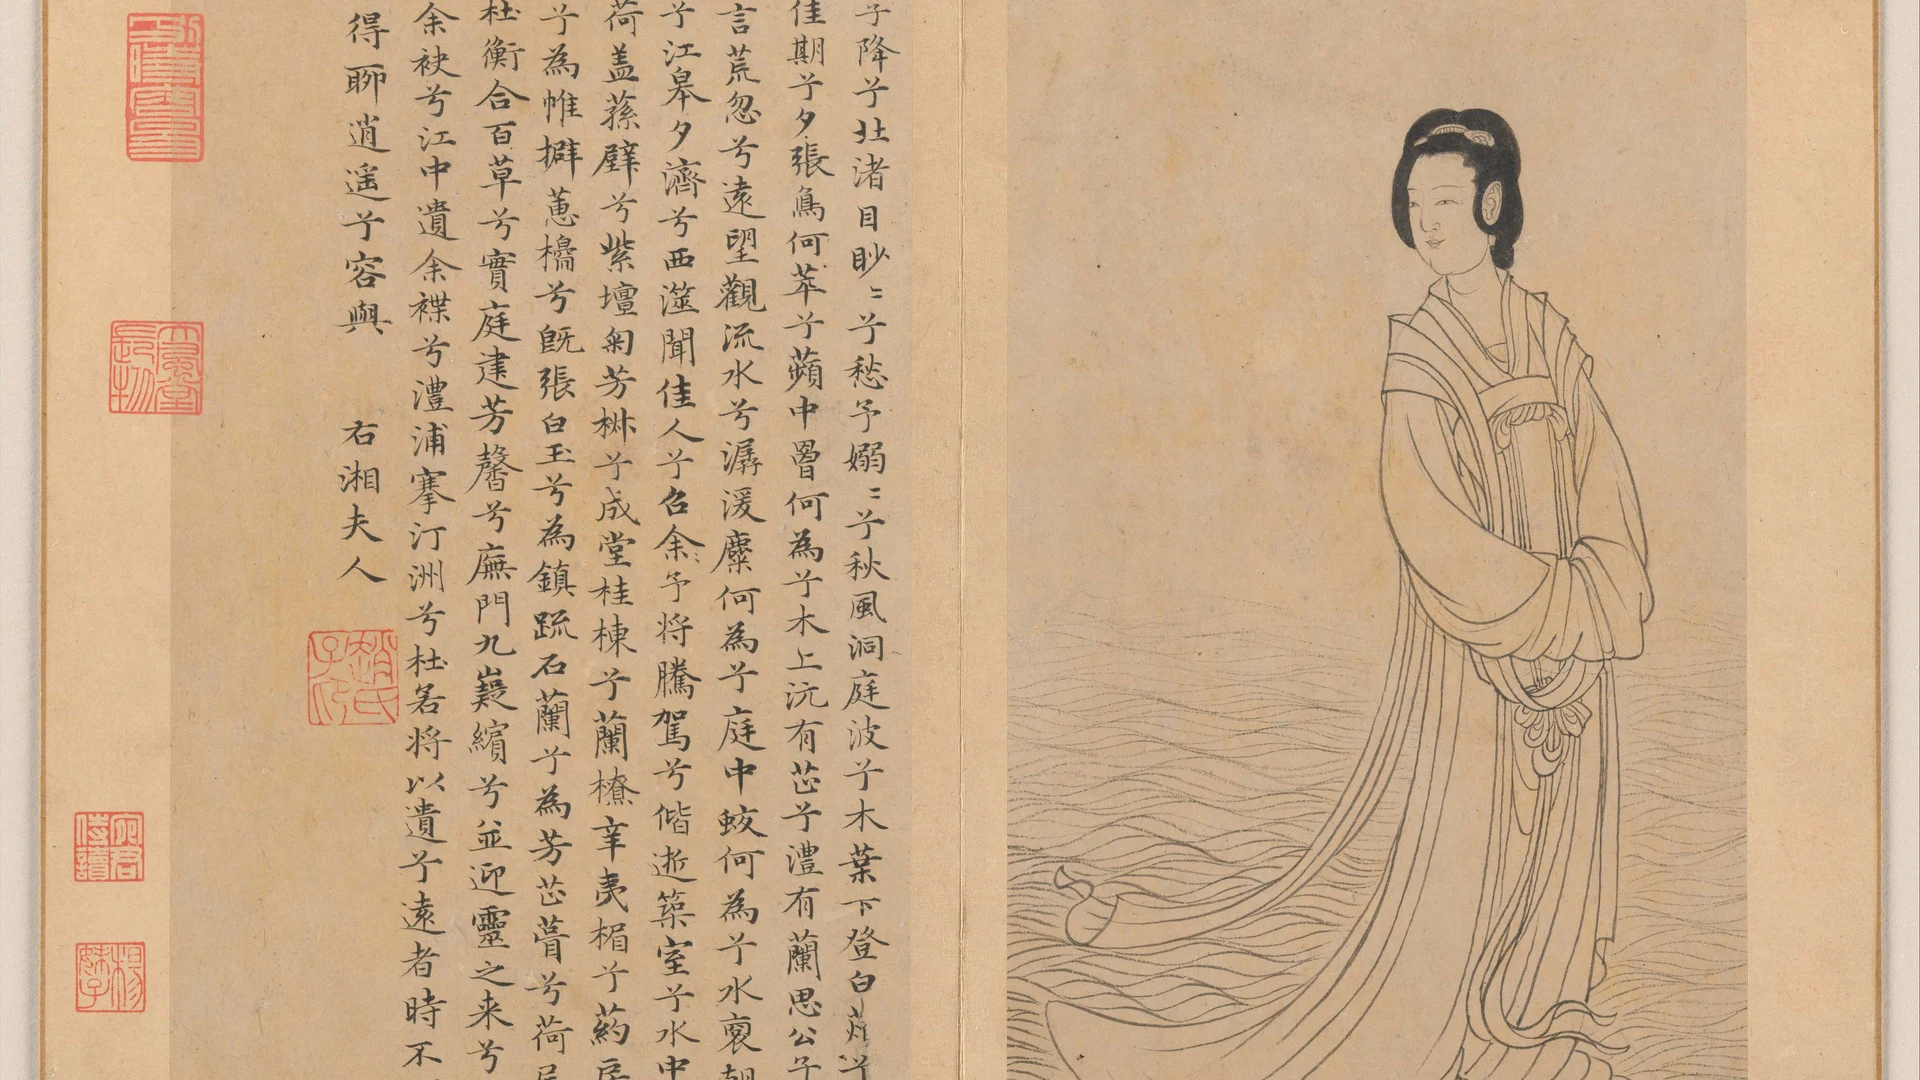 子降兮北渚目眇〻兮愁予嫋〻兮秋風洞庭波兮木葉下登白薠兮
佳期兮夕張鳥何萃兮蘋中罾何為兮木上沅有芷兮澧有蘭思公子
言荒忽兮遠望觀流水兮潺湲麋何為兮庭中蛟何為兮水裔朝
兮江皋夕濟兮西澨聞佳人兮召余予将騰駕兮偕逝築室兮水中
荷盖蓀壁兮紫壇菊芳椒兮成堂桂棟兮蘭橑辛夷楣兮葯房
兮為帷擗蕙櫋兮既張白玉兮為鎮疏石蘭兮為芳芷葺兮荷屋
杜衡合百草兮實庭建芳馨兮廡門九嶷繽兮並迎靈之来兮
余袂兮江中遺余褋兮澧浦搴汀洲兮杜若将以遺兮遠者時不
得聊逍遥兮容與 右湘夫人
趙氏子印